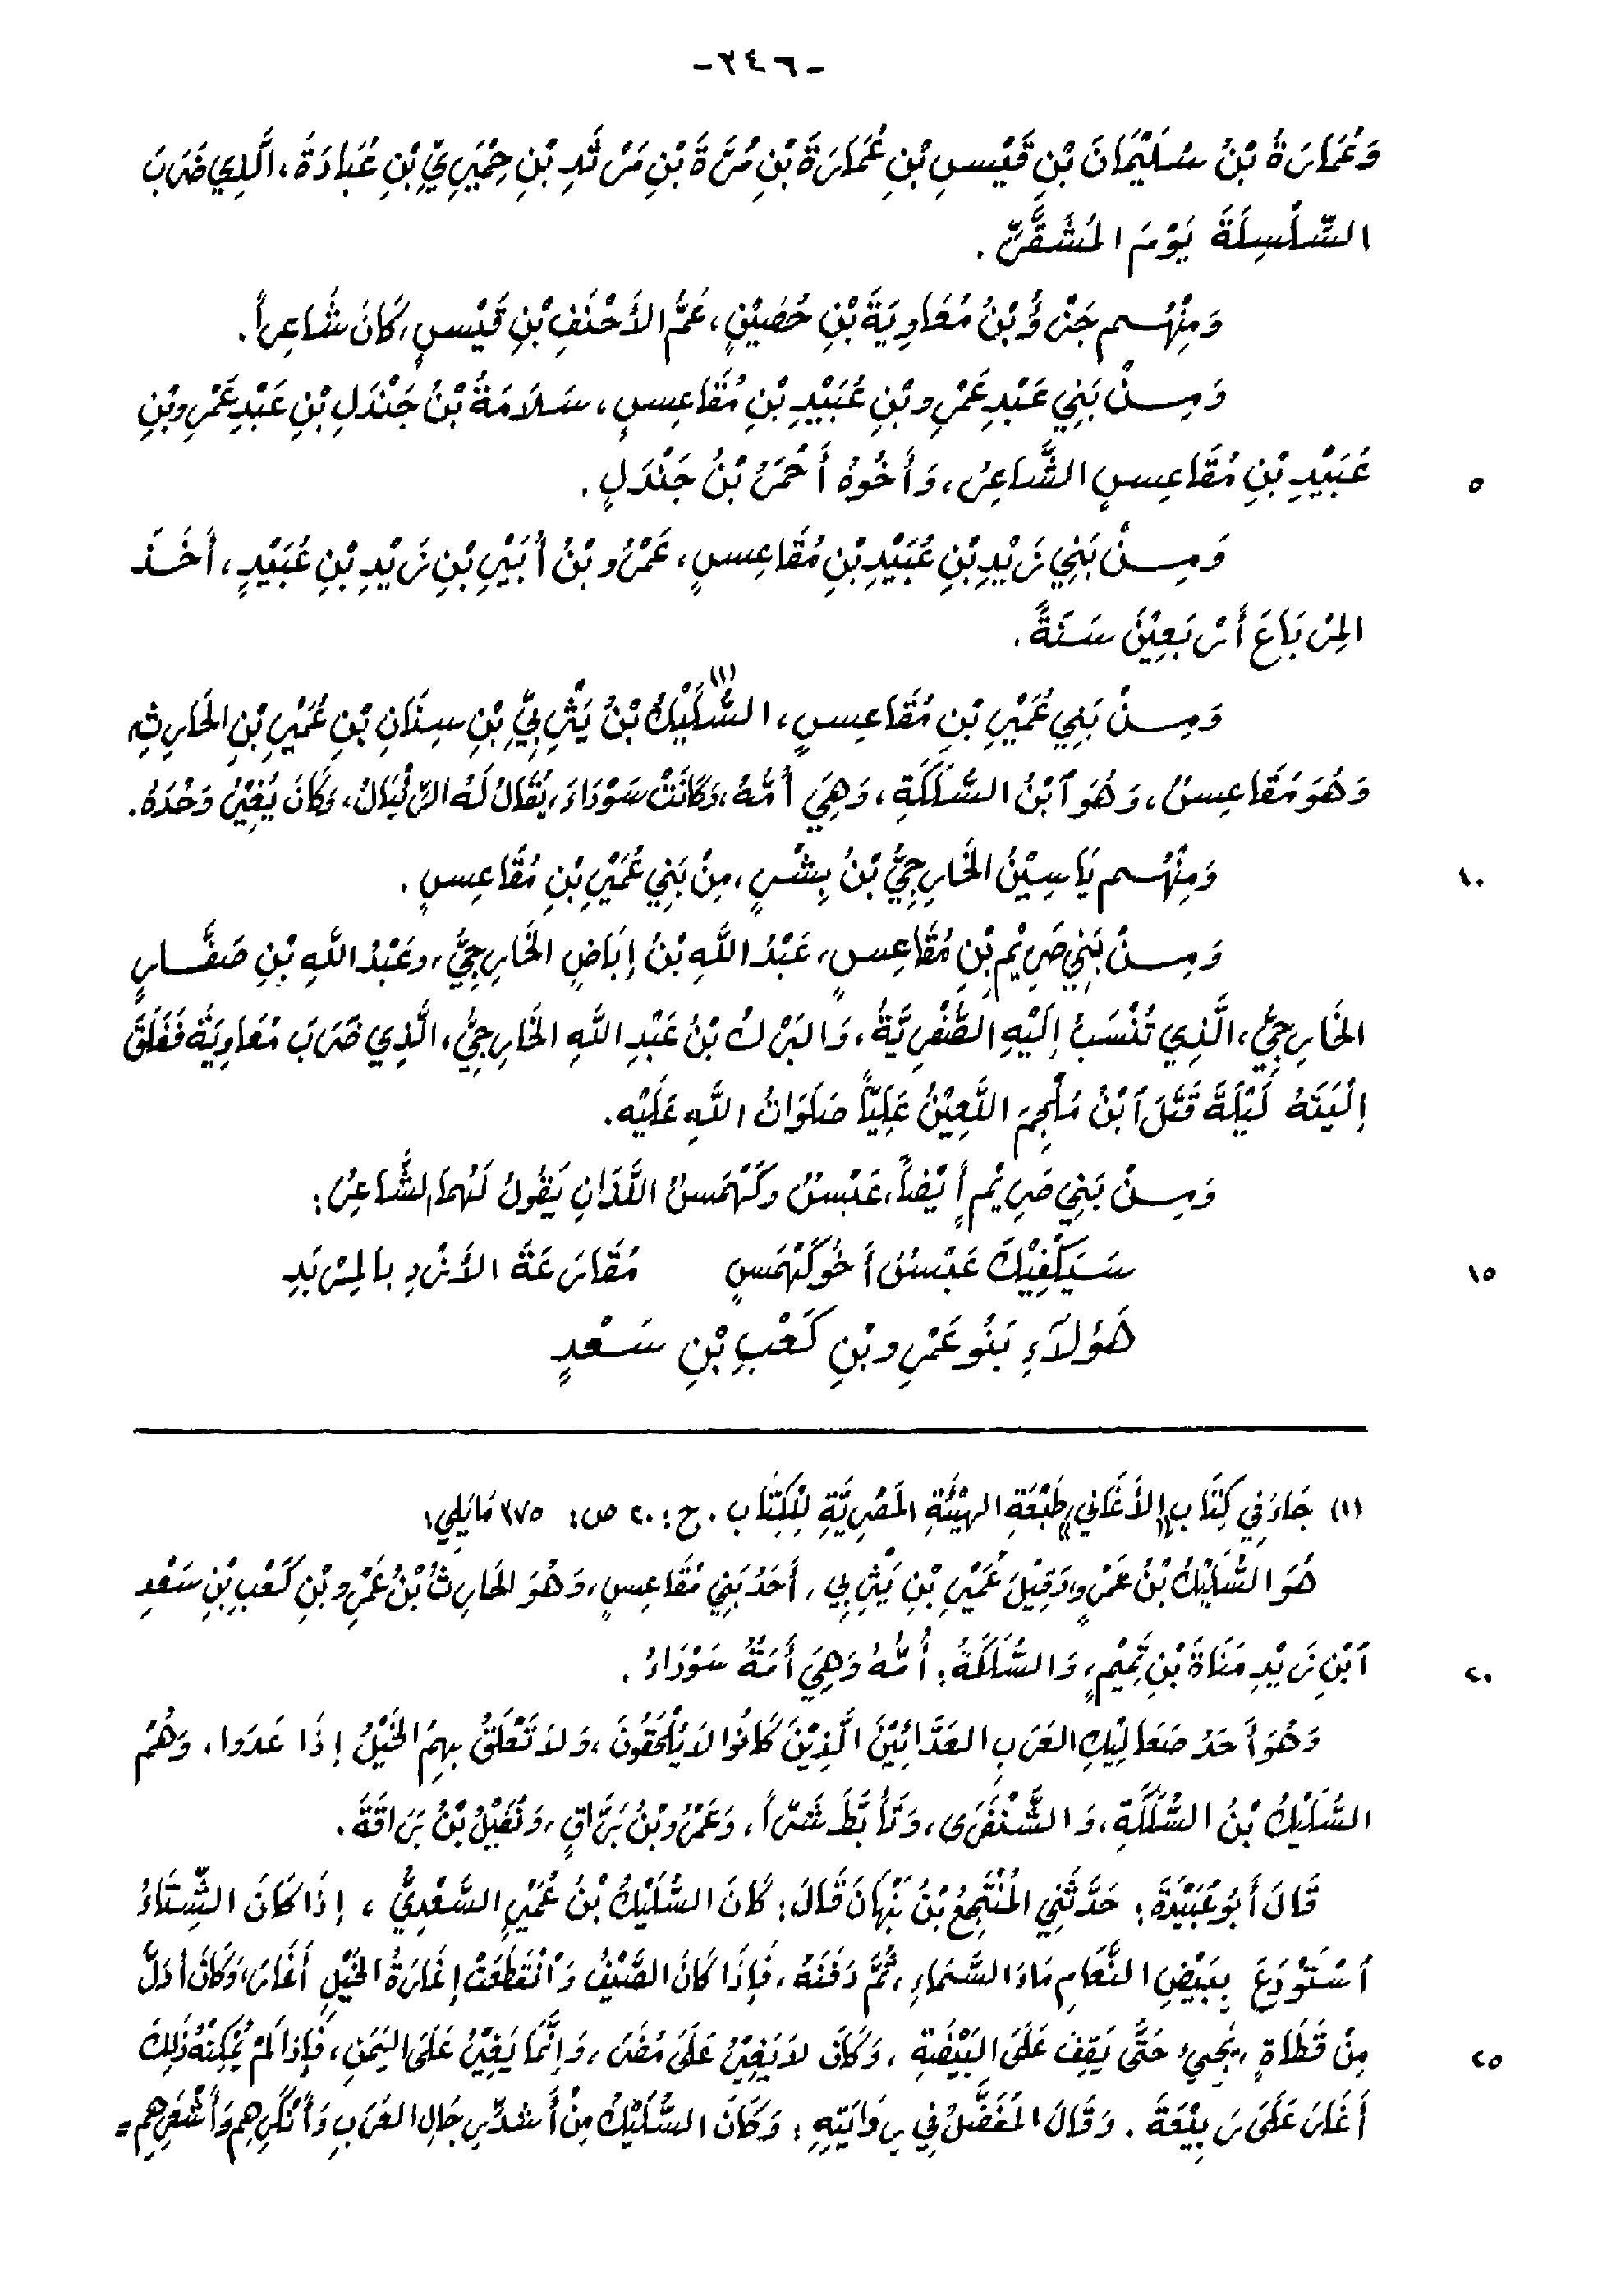 -٣٤٦-
وَعُمَارَةُ بْنُ سُلَيْمَانَ بْنِ قَيْسِ بْنِ عُمَارَةَ بْنِ مُرَّةَ بْنِ مَرْثَدِ بْنِ حِمْيَرِيِّ بْنِ عُبَادَةَ، الَّذِي ضَرَبَ
السِّلْسِلَةَ يَوْمَ المُشَقَّرِ.
وَمِنْهُم جَزْءُ بْنُ مُعَاوِيَةَ بْنِ حُصَيْنٍ، عَمُّ الأَحْنَفِ بْنِ قَيْسٍ، كَانَ شَاعِراً.
وَمِنْ بَنِي عَبْدِ عَمْرِو بْنِ عُبَيْدِ بْنِ مُقَاعِسٍ، سَلَامَةُ بْنُ جَنْدَلِ بْنِ عَبْدِ عَمْرِو بْنِ
عُبَيْدِ بْنِ مُقَاعِسٍ الشَّاعِرُ، وَأَخُوهُ أَحْمَرُ بْنُ جَنْدَلٍ. ٥
وَمِنْ بَنِي زَيْدِ بْنِ عُبَيْدِ بْنِ مُقَاعِسٍ، عَمْرُو بْنُ أُبَيْرِ بْنِ زَيْدِ بْنِ عُبَيْدٍ، أَخَذَ
المِرْبَاعَ أَرْبَعِيْنَ سَنَةً.
وَمِنْ بَنِي عُمَيْرِ بْنِ مُقَاعِسٍ، السُّلَيْكُ(١) بْنُ يَثْرِبِيِّ بْنِ سِنَانِ بْنِ عُمَيْرِ بْنِ الحَارِثِ
وَهُوَ مُقَاعِسُ، وَهُوَ ٱبْنُ السُّلَكَةِ، وَهِيَ أُمُّهُ، وَكَانَتْ سَوْدَاءَ، يُقَالُ لَهُ الرِّئْبَالُ، وَكَانَ يُغِيْرُ وَحْدَهُ.
وَمِنْهُم يَاسِيْنُ الخَارِجِيُّ بْنُ بِشْرٍ، مِنْ بَنِي عُمَيْرِ بْنِ مُقَاعِسٍ. ١٠
وَمِنْ بَنِي صَرِيْمِ بْنِ مُقَاعِسٍ، عَبْدُ اللَّهِ بْنُ إِبَاضٍ الخَارِجِيُّ، وعَبْدُ اللَّهِ بْنِ صَفَّارٍ
الخَارِجِيُّ، الَّذِي تُنْسَبُ إِلَيْهِ الصُّفْرِيَّةُ، وَالبَرْكُ بْنُ عَبْدِ اللَّهِ الخَارِجِيُّ، الَّذِي ضَرَبَ مُعَاوِيَةَ فَفَلَقَ
إِلْيَتَهُ لَيْلَةَ قَتَلَ ٱبْنُ مُلْجِمَ اللَّعِيْنُ عَلِيّاً صَلَوَاتُ اللَّهِ عَلَيْهِ.
وَمِنْ بَنِي صَرِيْمٍ أَيْضاً، عَبْسُ وكَهْمَسُ اللَّذَانِ يَقُولُ لَهُمَا الشَّاعِرُ:
سَيَكْفِيْكَ عَبْسُ أَخُو كَهْمَسٍ مُقَارَعَةَ الأَزْدِ بالمِرْبَدِ ١٥
هَؤُلَآءِ بَنُو عَمْرِو بْنِ كَعْبِ بْنِ سَعْدٍ
(١) جَاءَ فِي كِتَابِ «الأَغَانِي» طَبْعَةِ الهَيْئَةِ المَصْرِيَّةِ لِلكِتَاب. ج: ٢٠ ص: ٣٧٥ مَايَلِي:
هُوَ السُّلَيْكُ بْنُ عَمْرٍو، وَقِيْلَ عُمَيْرِ بْنِ يَثْرِبِي، أَحَدُ بَنِي مُقَاعِسٍ، وَهُوَ الحَارِثُ بْنُ عَمْرِو بْنِ كَعْبِ بْنِ سَعْدِ
ٱبْنِ زَيْدِ مَنَاةَ بْنِ تَمِيْمٍ، وَالسُّلَكَةُ: أُمُّهُ وَهِيَ أَمَةٌ سَوْدَاءُ. ٢٠
وَهُوَ أَحَدُ صَعَالِيْكِ العَرَبِ العَدَّائِيْنَ الَّذِيْنَ كَانُوا لَا يُلْحَقُونَ، وَلَا تَعْلَقُ بِهِمُ الخَيْلُ إِذَا عَدَوا، وَهُمُ
السُّلَيْكُ بْنُ السُّلَكَةِ، وَالشَّنْفَرَى، وَتَأَبَّطَ شَرّاً، وَعَمْرُو بْنُ بَرَّاقٍ، وَنُفَيْلُ بْنُ بَرَاقَةَ.
قَالَ أَبُو عُبَيْدَةَ: حَدَّثَنِي المُنْتَجِعُ بْنُ نَبْهَانَ قَالَ: كَانَ السُّلَيْكُ بْنُ عُمَيْرٍ السَّعْدِيُّ، إِذَا كَانَ الشِّتَاءُ
ٱسْتَوْدَعَ بِبَيْضِ النَّعَامِ مَاءَ السَّمَاءِ، ثُمَّ دَفَنَهُ، فَإِذَا كَانَ الصَّيْفُ وَٱنْقَطَعَتْ إِغَارَةُ الخَيْلِ أَغَارَ، وَكَانَ أَدَلَّ
مِنْ قَطَاةٍ، يَجِيءُ حَتَّى يَقِفَ عَلَى البَيْضَةِ، وَكَانَ لَا يَغِيْرُ عَلَى مُضَرَ، وَإِنَّمَا يَغِيْرُ عَلَى اليَمَنِ، فَإِذَا لَمْ يُمْكِنْهُ ذَلِكَ ٢٥
أَغَارَ عَلَى رَبِيْعَةَ. وَقَالَ المُفَضَّلُ فِي رِوَايَتِهِ: وَكَانَ السُّلَيْكُ مِنْ أَشدِّ رِجَالِ العَرَبِ وَأَنْكَرِهِم وَأَشْعَرِهِم =